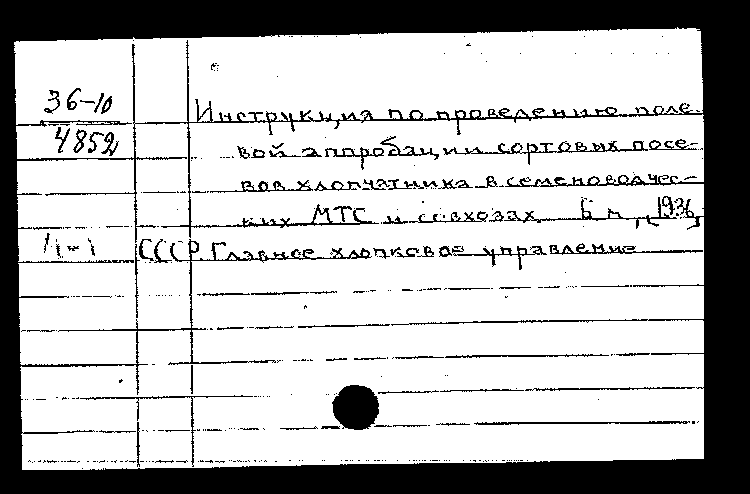 36-10
4852
Инструкция по проведению поле-
вой аппробации сортовых посе-
вов хлопчатника в семеноводчес-
ких МТС и совхозах. Б м, [1936]
СССР. Главное хлопковое управление